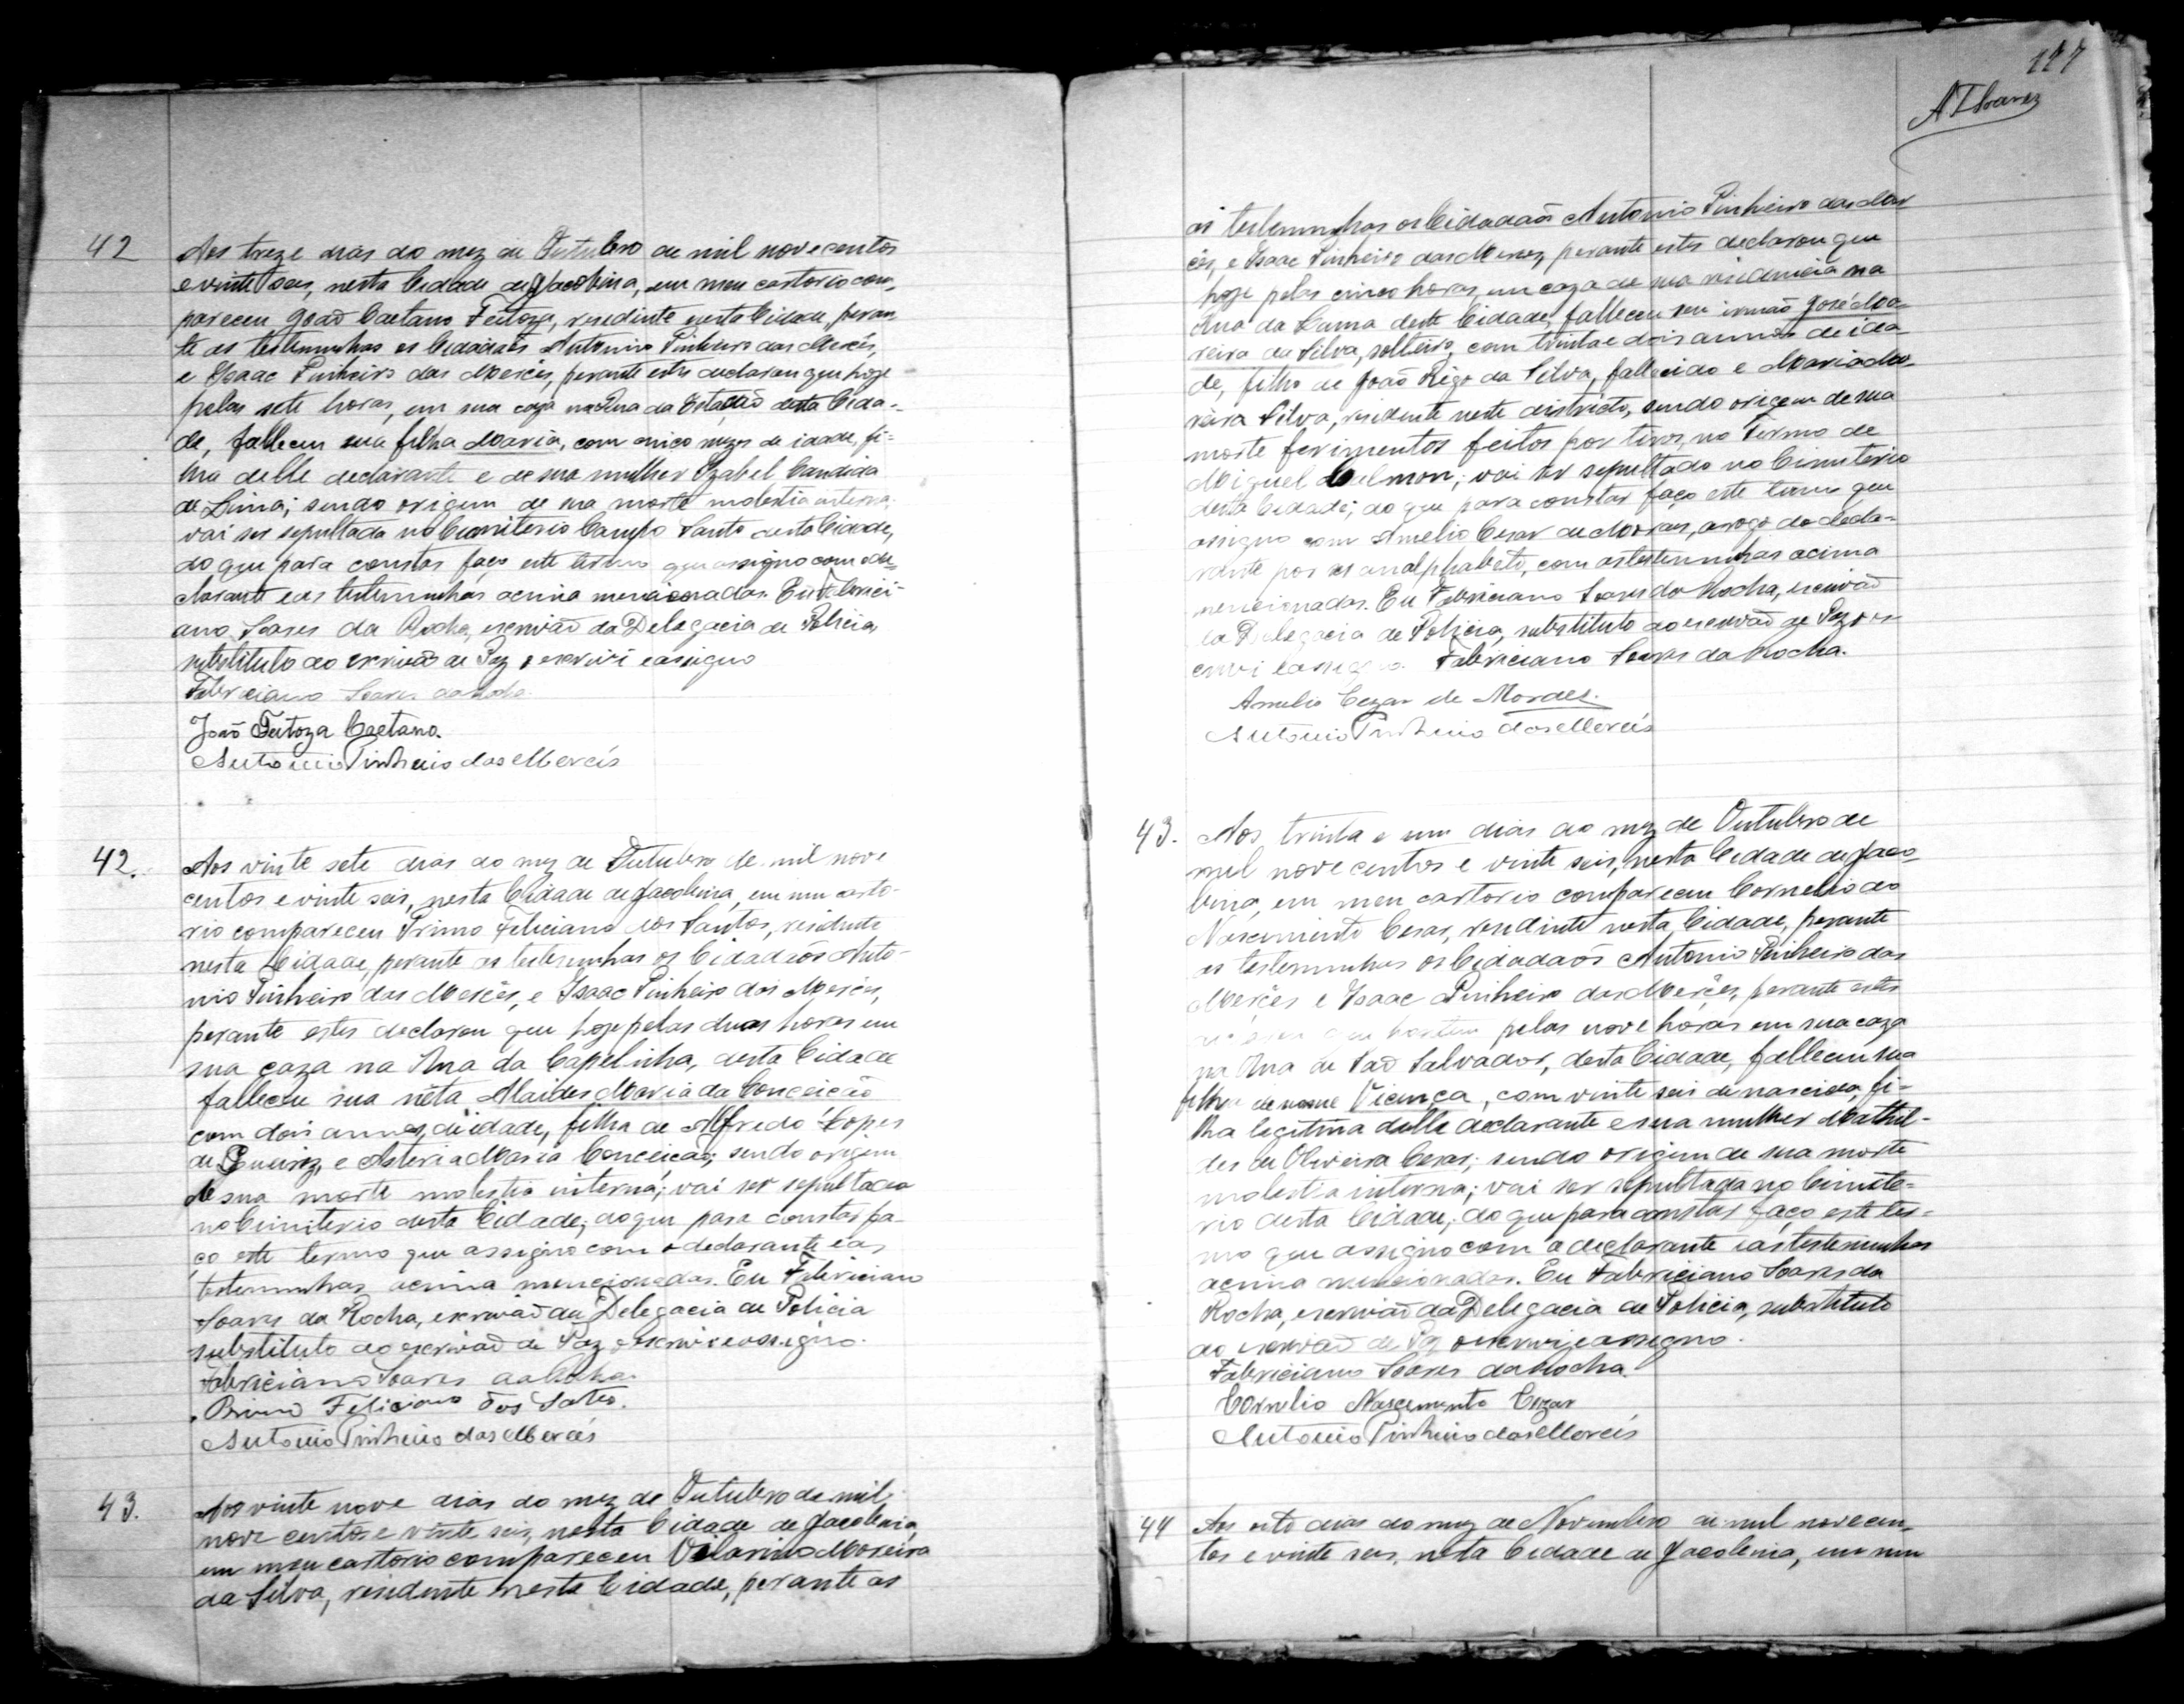 42
Aos treze dias do mez de Outubro de mil novecentos
e vinte seis, nesta Cidade de Jacobina, em meu cartorio com-
pareceu João Caetano Feitoza, residente nesta Cidade, peran-
te as testemunhas os Cidadãos Antonio Pinheiro das Mercês,
e Isaac Pinheiro das Mercês, perante estes declarou que hoje
pelas sete horas, em sua caza na Rua da Estação desta Cida-
de, falleceu sua filha Maria, com cinco mezes de idade, fi-
lha delle declarante e de sua mulher Izabel Candida
de Lima; sendo origem de sua morte molestia interna;
vai ser sepultada no Cemiterio Campo Santo desta Cidade,
do que para constar faço este termo que assigno com o de-
clarante e as testemunhas acima mencionadas. Eu Fabrici-
ano Soares da Rocha, escrivão da Delegacia de Policia,
substituto do escrivão de Paz o escrivi e assigno
Fabriciano Soares da Rocha.
João Feitoza Caetano.
Antonio Pinheiro das Mercês
42.
Aos vinte sete dias do mez de Outubro de mil nove
centos e vinte seis, nesta Cidade de Jacobina, em meu carto-
rio compareceu Primo Feliciano dos Santos, residente
nesta Cidade, perante as testemunhas os Cidadãos Anto-
nio Pinheiro das Mercês, e Isaac Pinheiro das Mercês,
perante estes declarou que hoje pelas duas horas em
sua caza na Rua da Capelinha, desta Cidade
falleceu sua neta Alaides Maria da Conceição
com dois annos, de idade, filha de Alfredo Lopes
de Queiroz, e Asteria Maria Conceicão; sendo origem
de sua morte molestia interna; vai ser sepultada
no Cimiterio desta Cidade; do que para constar fa-
ço este termo que assigno com o declarante e as
testemunhas acima mencionadas. Eu Fabriciano
Soares da Rocha, escrivão da Delegacia de Policia
substituto do escrivão de Paz o escrivi e assigno.
Fabriciano Soares da Rocha
Primo Feliciano dos Satos.
Antonio Pinheiro das Mercês
43.
Aos vinte nove dias do mez de Outubro de mil
nove centos e vinte seis, nesta Cidade de Jacobina,
em meu cartorio compareceu Vilarino Moreira
da Silva, residente nesta Cidade, perante as
127
A T Soares
as testemunhas os Cidadãos Antonio Pinheiro das Mer
cês, e Isaac Pinheiro das Merces, perante estes declarou que
hoje pelas cinco horas, em caza de sua residencia na
Rua da Lama desta Cidade, falleceu seu irmão José Mo-
reira da Silva, solteiro, com trinta e dois annos de ida-
de, filho de João Rigo da Silva, fallecido e Maria Mo-
reira Silva, residente neste districto, sendo origem de sua
morte ferimentos feitos por tiros, no Termo de
Miguel Calmon; vai ser sepultado no Cimiterio
desta Cidade; do que para constar faço este termo que
assigno com Amelio Cesar de Moraes, a rogo do decla-
rante por ser analphabeto, com as testemunhas acima
mencionadas. Eu Fabriciano Soares da Rocha, escrivão
da Delegacia de Policia, substituto do escrivão de Paz o es-
crivi e assigno. Fabriciano Soares da Rocha.
Amelio Cezar de Moraes.
Antonio Pinheiro das Mercês
43.
Aos trinta e um dias do mez de Outubro de
mil nove centos e vinte seis, nesta Cidade de Jaco-
bina, em meu cartorio compareceu Cornelio do
Nascimento Cesar, residente nesta Cidade, perante
as testemunhas os Cidadãos Antonio Pinheiro das
Mercês e Isaac Pinheiro das Mercês, perante estes
que hontem pelas nove horas em sua caza
na Rua de São Salvador, desta Cidade, falleceu sua
filha de nome Vicença, com vinte seis de nascida, fi-
lha legitima delle declarante e sua mulher Mathil-
des de Oliveira Cesar; sendo origem de sua morte
molestia interna; vai ser sepultada no Cimite-
rio desta Cidade; do que para constar faço este ter-
mo que assigno com o declarante e as testemunhas
acima mencionadas. Eu Fabriciano Soares da
Rocha, escrivão da Delegacia de Policia, substituto
do escrivão de Paz o escrivi e assigno.
Fabriciano Soares da Rocha
Cornelio Nascemento Cezar
Antonio Pinheiro das Mercês
44
Aos oito dias do mez de Novembro de mil novecen-
tos e vinte seis, nesta Cidade de Jacobina, em meu